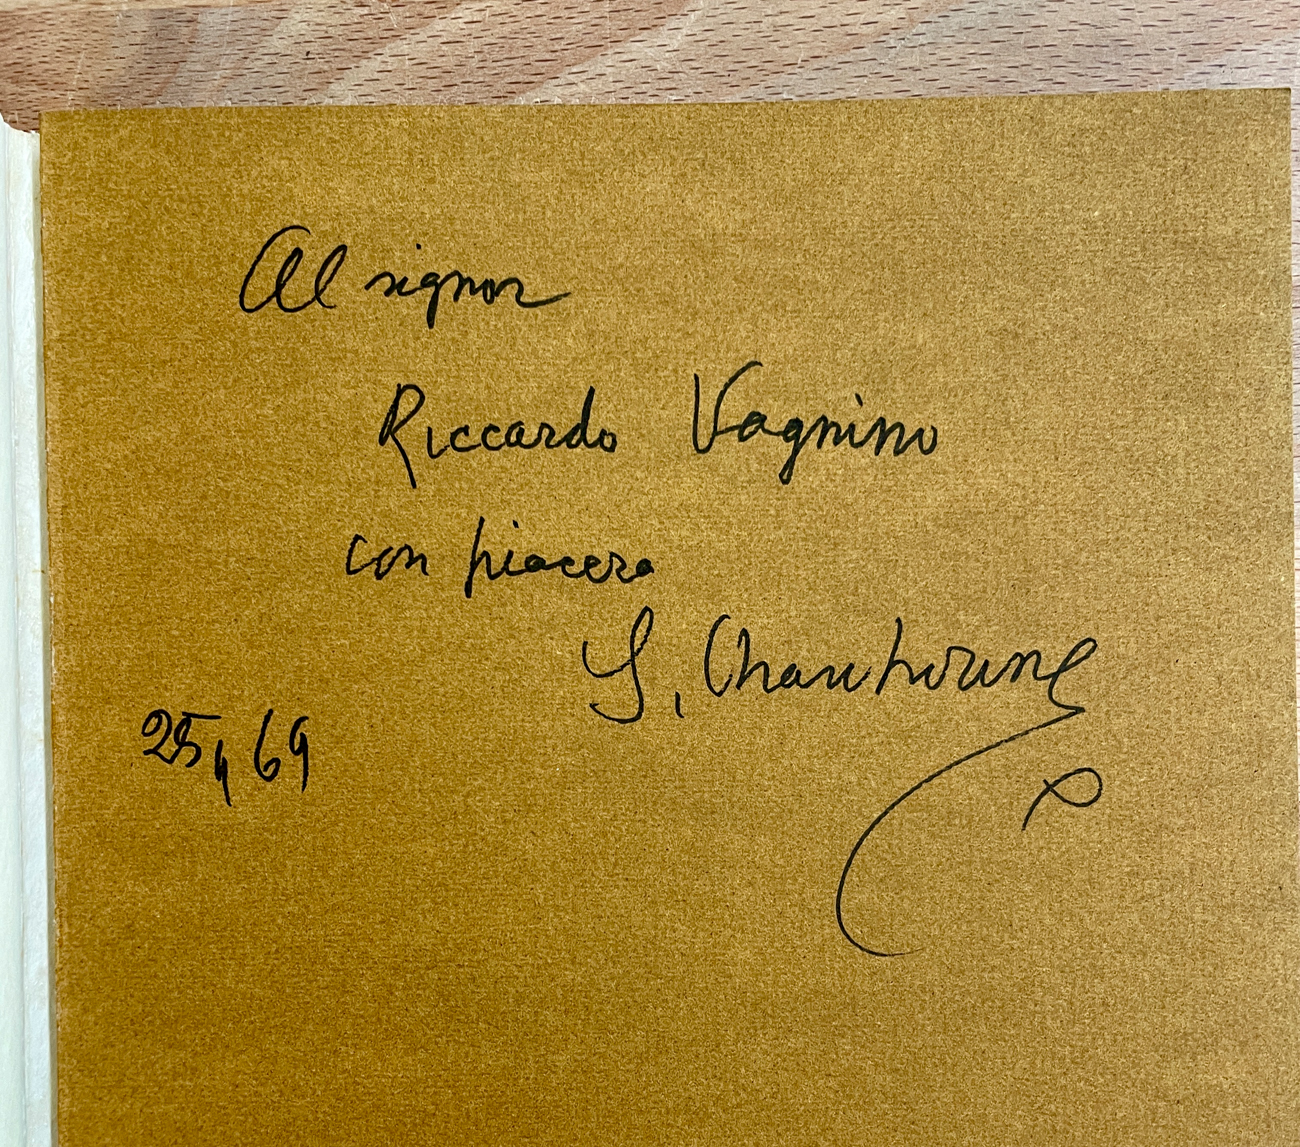 Al signor
Riccardo Vagnino
con piacere
S. Charchoune
25, 4 69